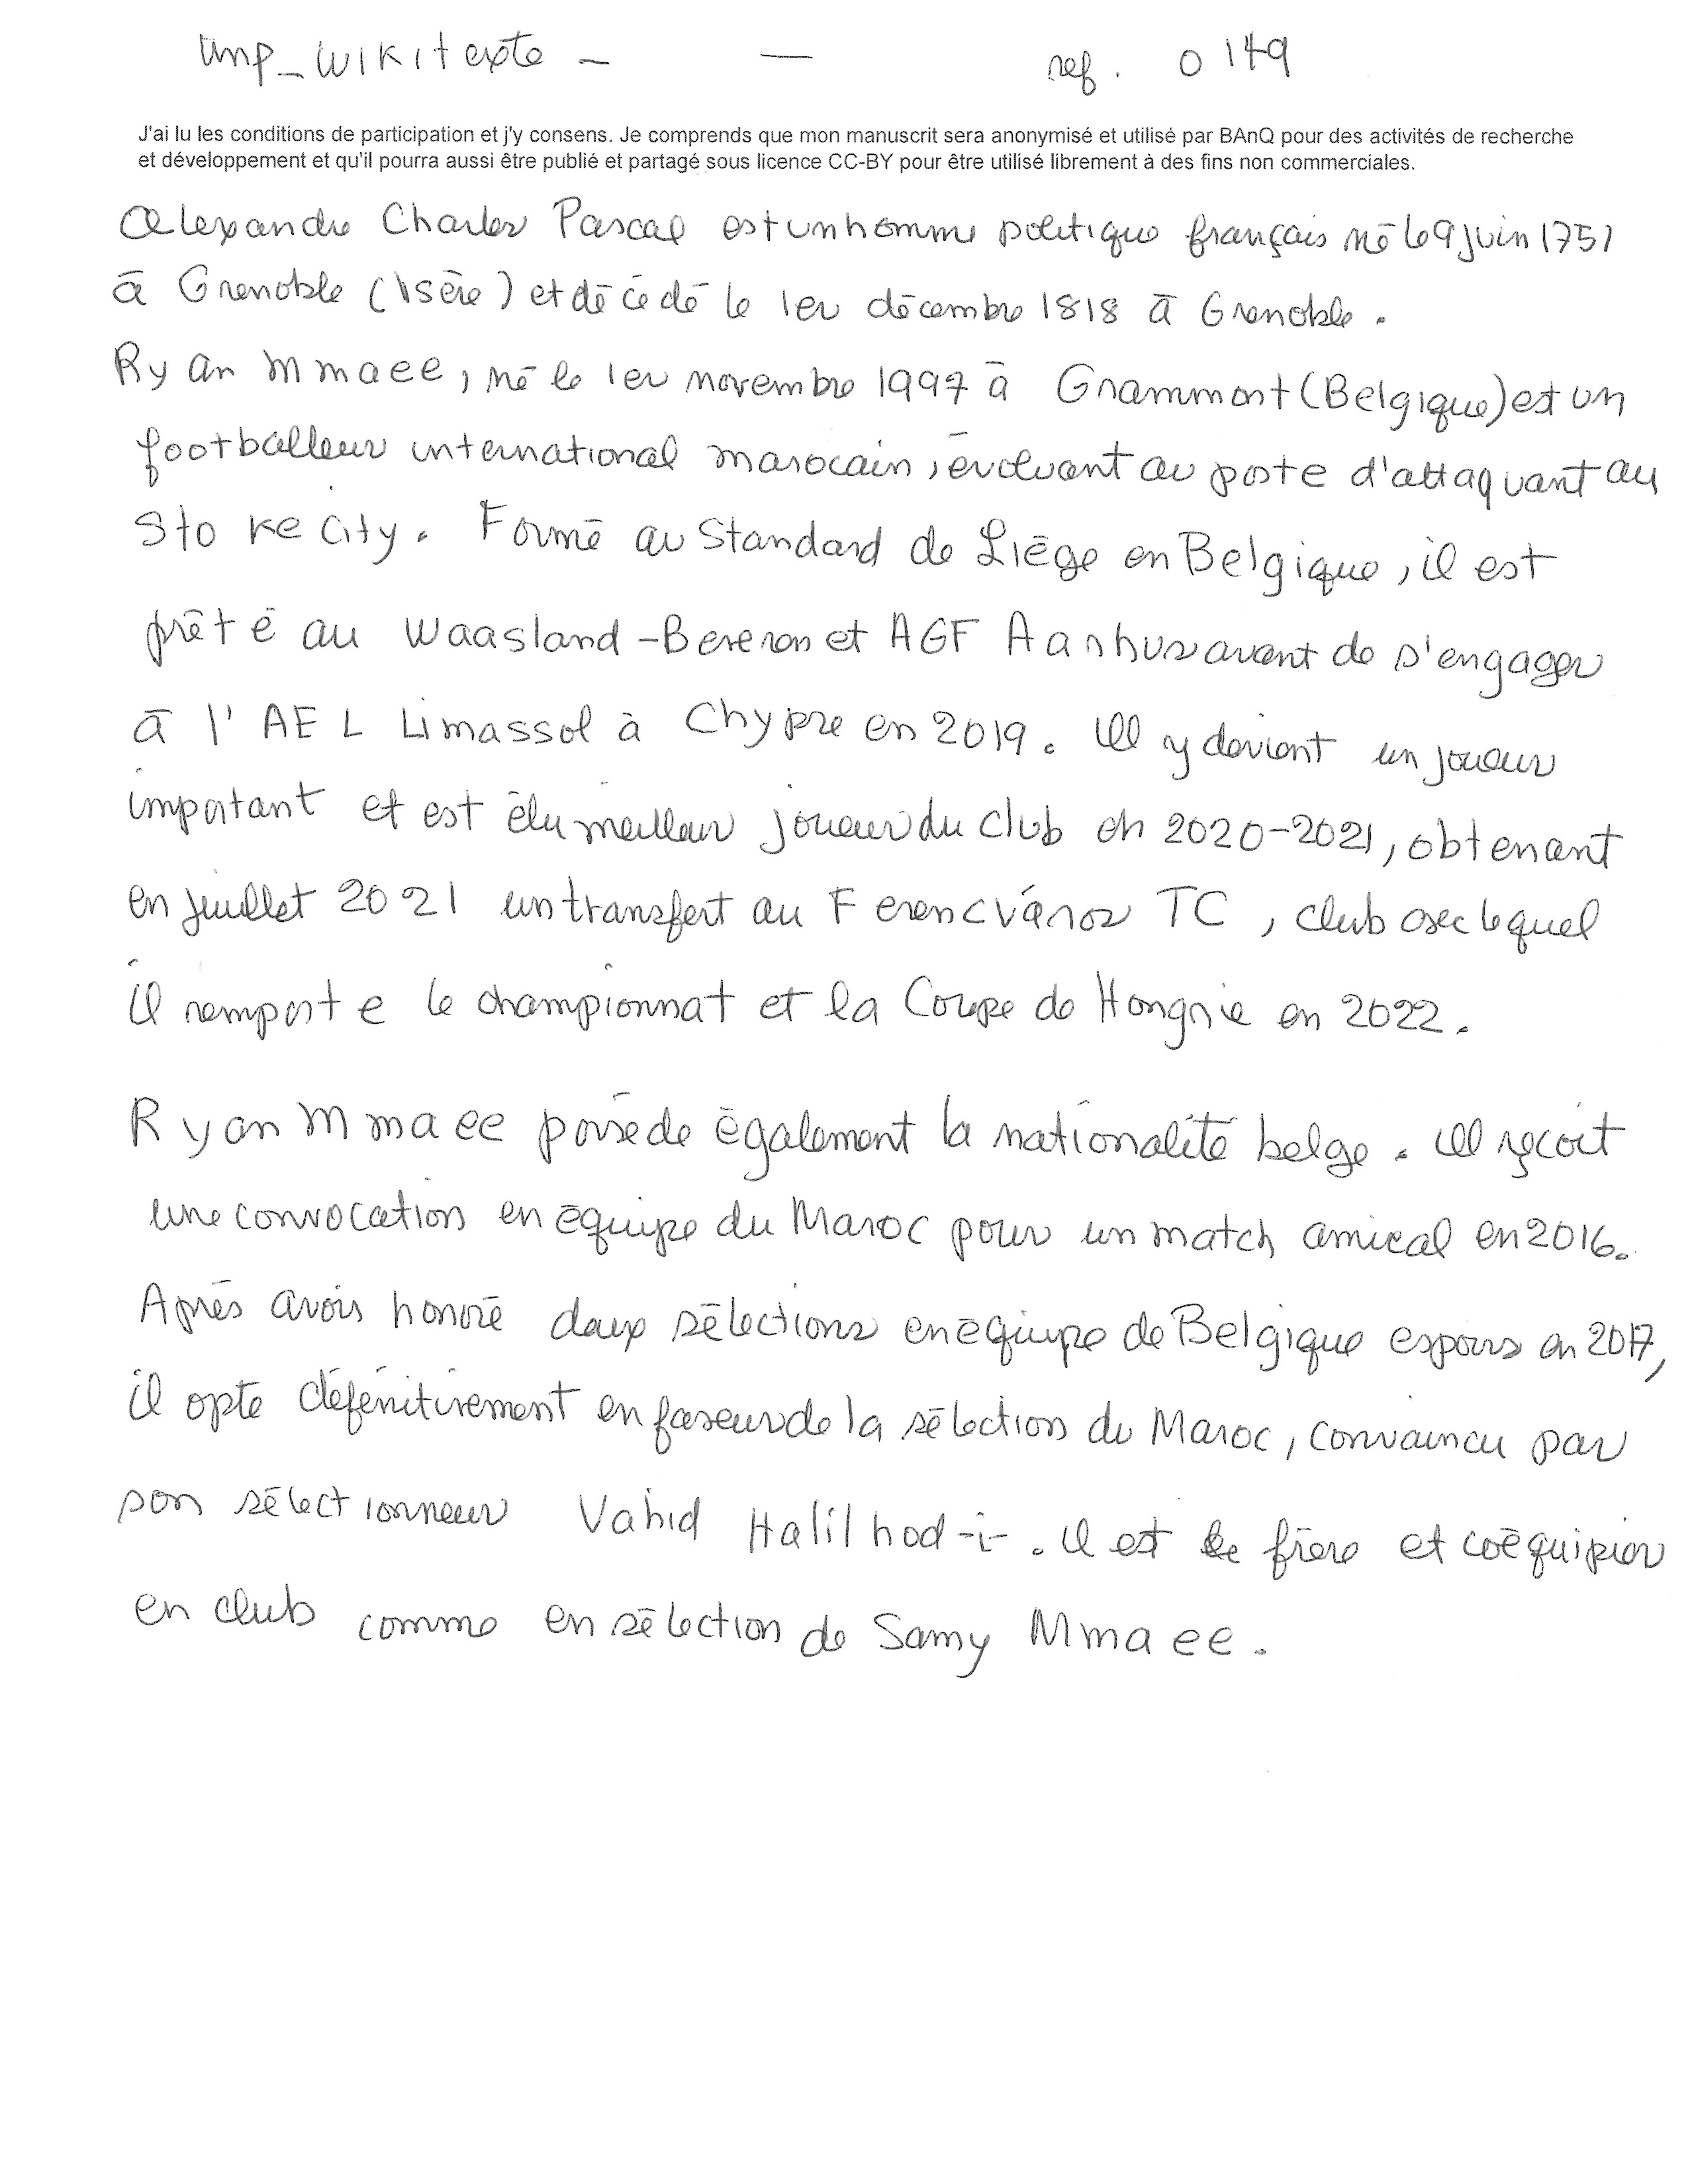 imp_wikitexte - — ref. 0149
J'ai lu les conditions de participation et j'y consens. Je comprends que mon manuscrit sera anonymisé et utilisé par BAnQ pour des activités de recherche
et développement et qu'il pourra aussi être publié et partagé sous licence CC-BY pour être utilisé librement à des fins non commerciales.
Alexandre Charles Pascal est un homme politique français né le 9 juin 1751
à Grenoble (Isère) et décédé le 1er décembre 1818 à Grenoble.
Ryan Mmaee, né le 1er novembre 1997 à Grammont (Belgique) est un
footballeur international marocain, évoluant au poste d'attaquant au
Stoke City. Formé au Standard de Liège en Belgique, il est
prêté au Waasland-Beveren et AGF Aarhus avant de s'engager
à l'AEL Limassol à Chypre en 2019. Il y devient un joueur
important et est élu meilleur joueur du club en 2020-2021, obtenant
en juillet 2021 un transfert au Ferencváros TC, club avec lequel
il remporte le championnat et la Coupe de Hongrie en 2022.
Ryan Mmaee possède également la nationalité belge. Il reçoit
une convocation en équipe du Maroc pour un match amical en 2016.
Après avoir honoré deux sélections en équipe de Belgique espoirs en 2017,
il opte défénitivement en faveur de la sélection du Maroc, convaincu par
son sélectionneur Vahid Halilhod-i-. Il est le frère et coéquipier
en club comme en sélection de Samy Mmaee.